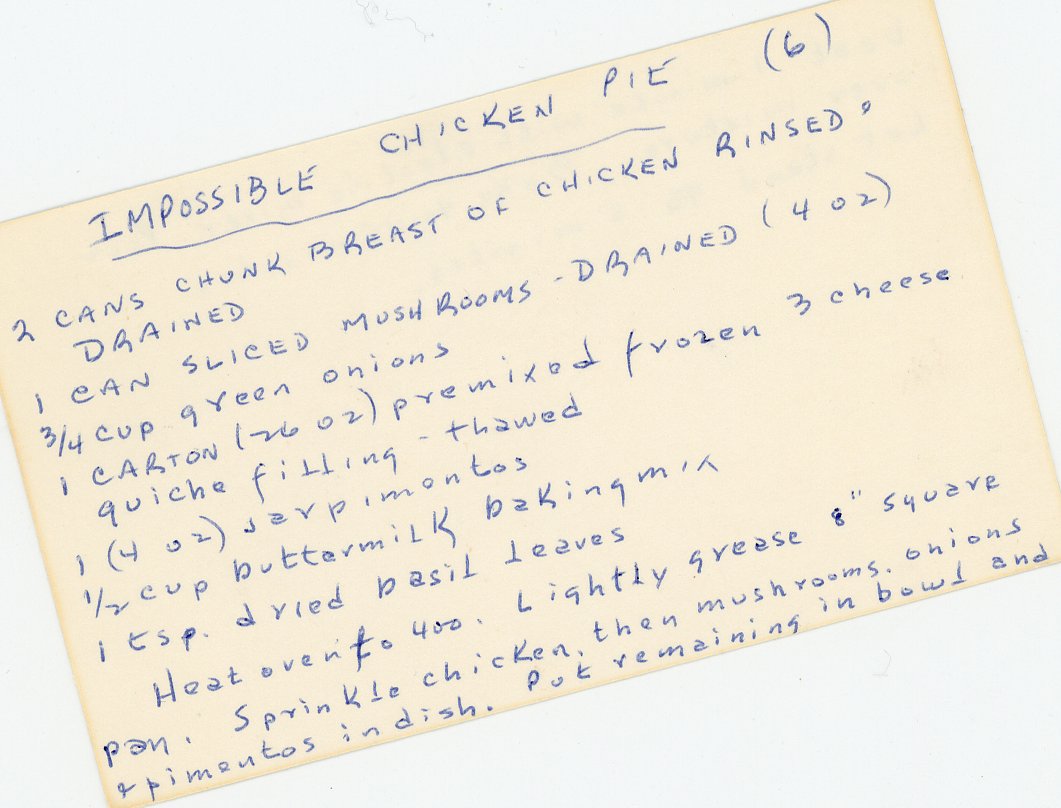 IMPOSSIBLE CHICKEN PIE (6)
2 CANS CHUNK BREAST OF CHICKEN RINSED
DRAINED
1 CAN SLICED MUSHROOMS - DRAINED (4 oz)
3/4 cup green onions
1 CARTON (26 oz) premixed frozen 3 cheese
quiche filling - thawed
1 (4 oz) jar pimentos
1/2 cup buttermilk baking mix
1 tsp. dried basil leaves
Heat oven to 400. Lightly grease 8" square
pan. Sprinkle chicken, then mushrooms, onions
& pimentos in dish. Put remaining in bowl and